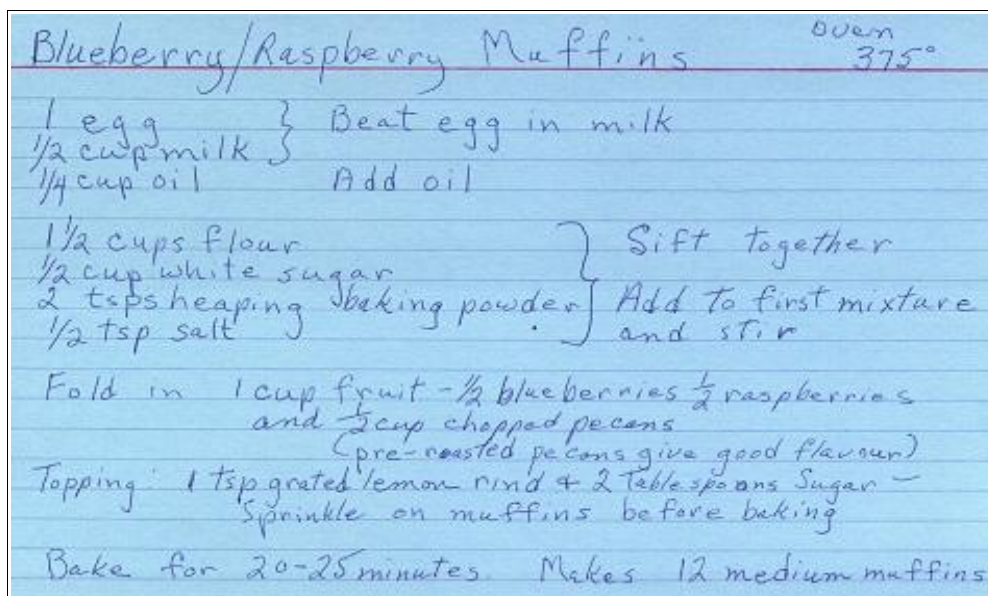 Blueberry/Raspberry Muffins oven 375°
1 egg } Beat egg in milk
1/2 cup milk
1/4 cup oil Add oil
1 1/2 cups flour } Sift together
1/2 cup white sugar
2 tsps heaping baking powder Add to first mixture
1/2 tsp salt and stir
Fold in 1 cup fruit - 1/2 blueberries 1/2 raspberries
and 1/2 cup chopped pecans
(pre-roasted pecans give good flavour)
Topping: 1 tsp grated lemon rind & 2 Tablespoons Sugar –
Sprinkle on muffins before baking
Bake for 20-25 minutes. Makes 12 medium muffins